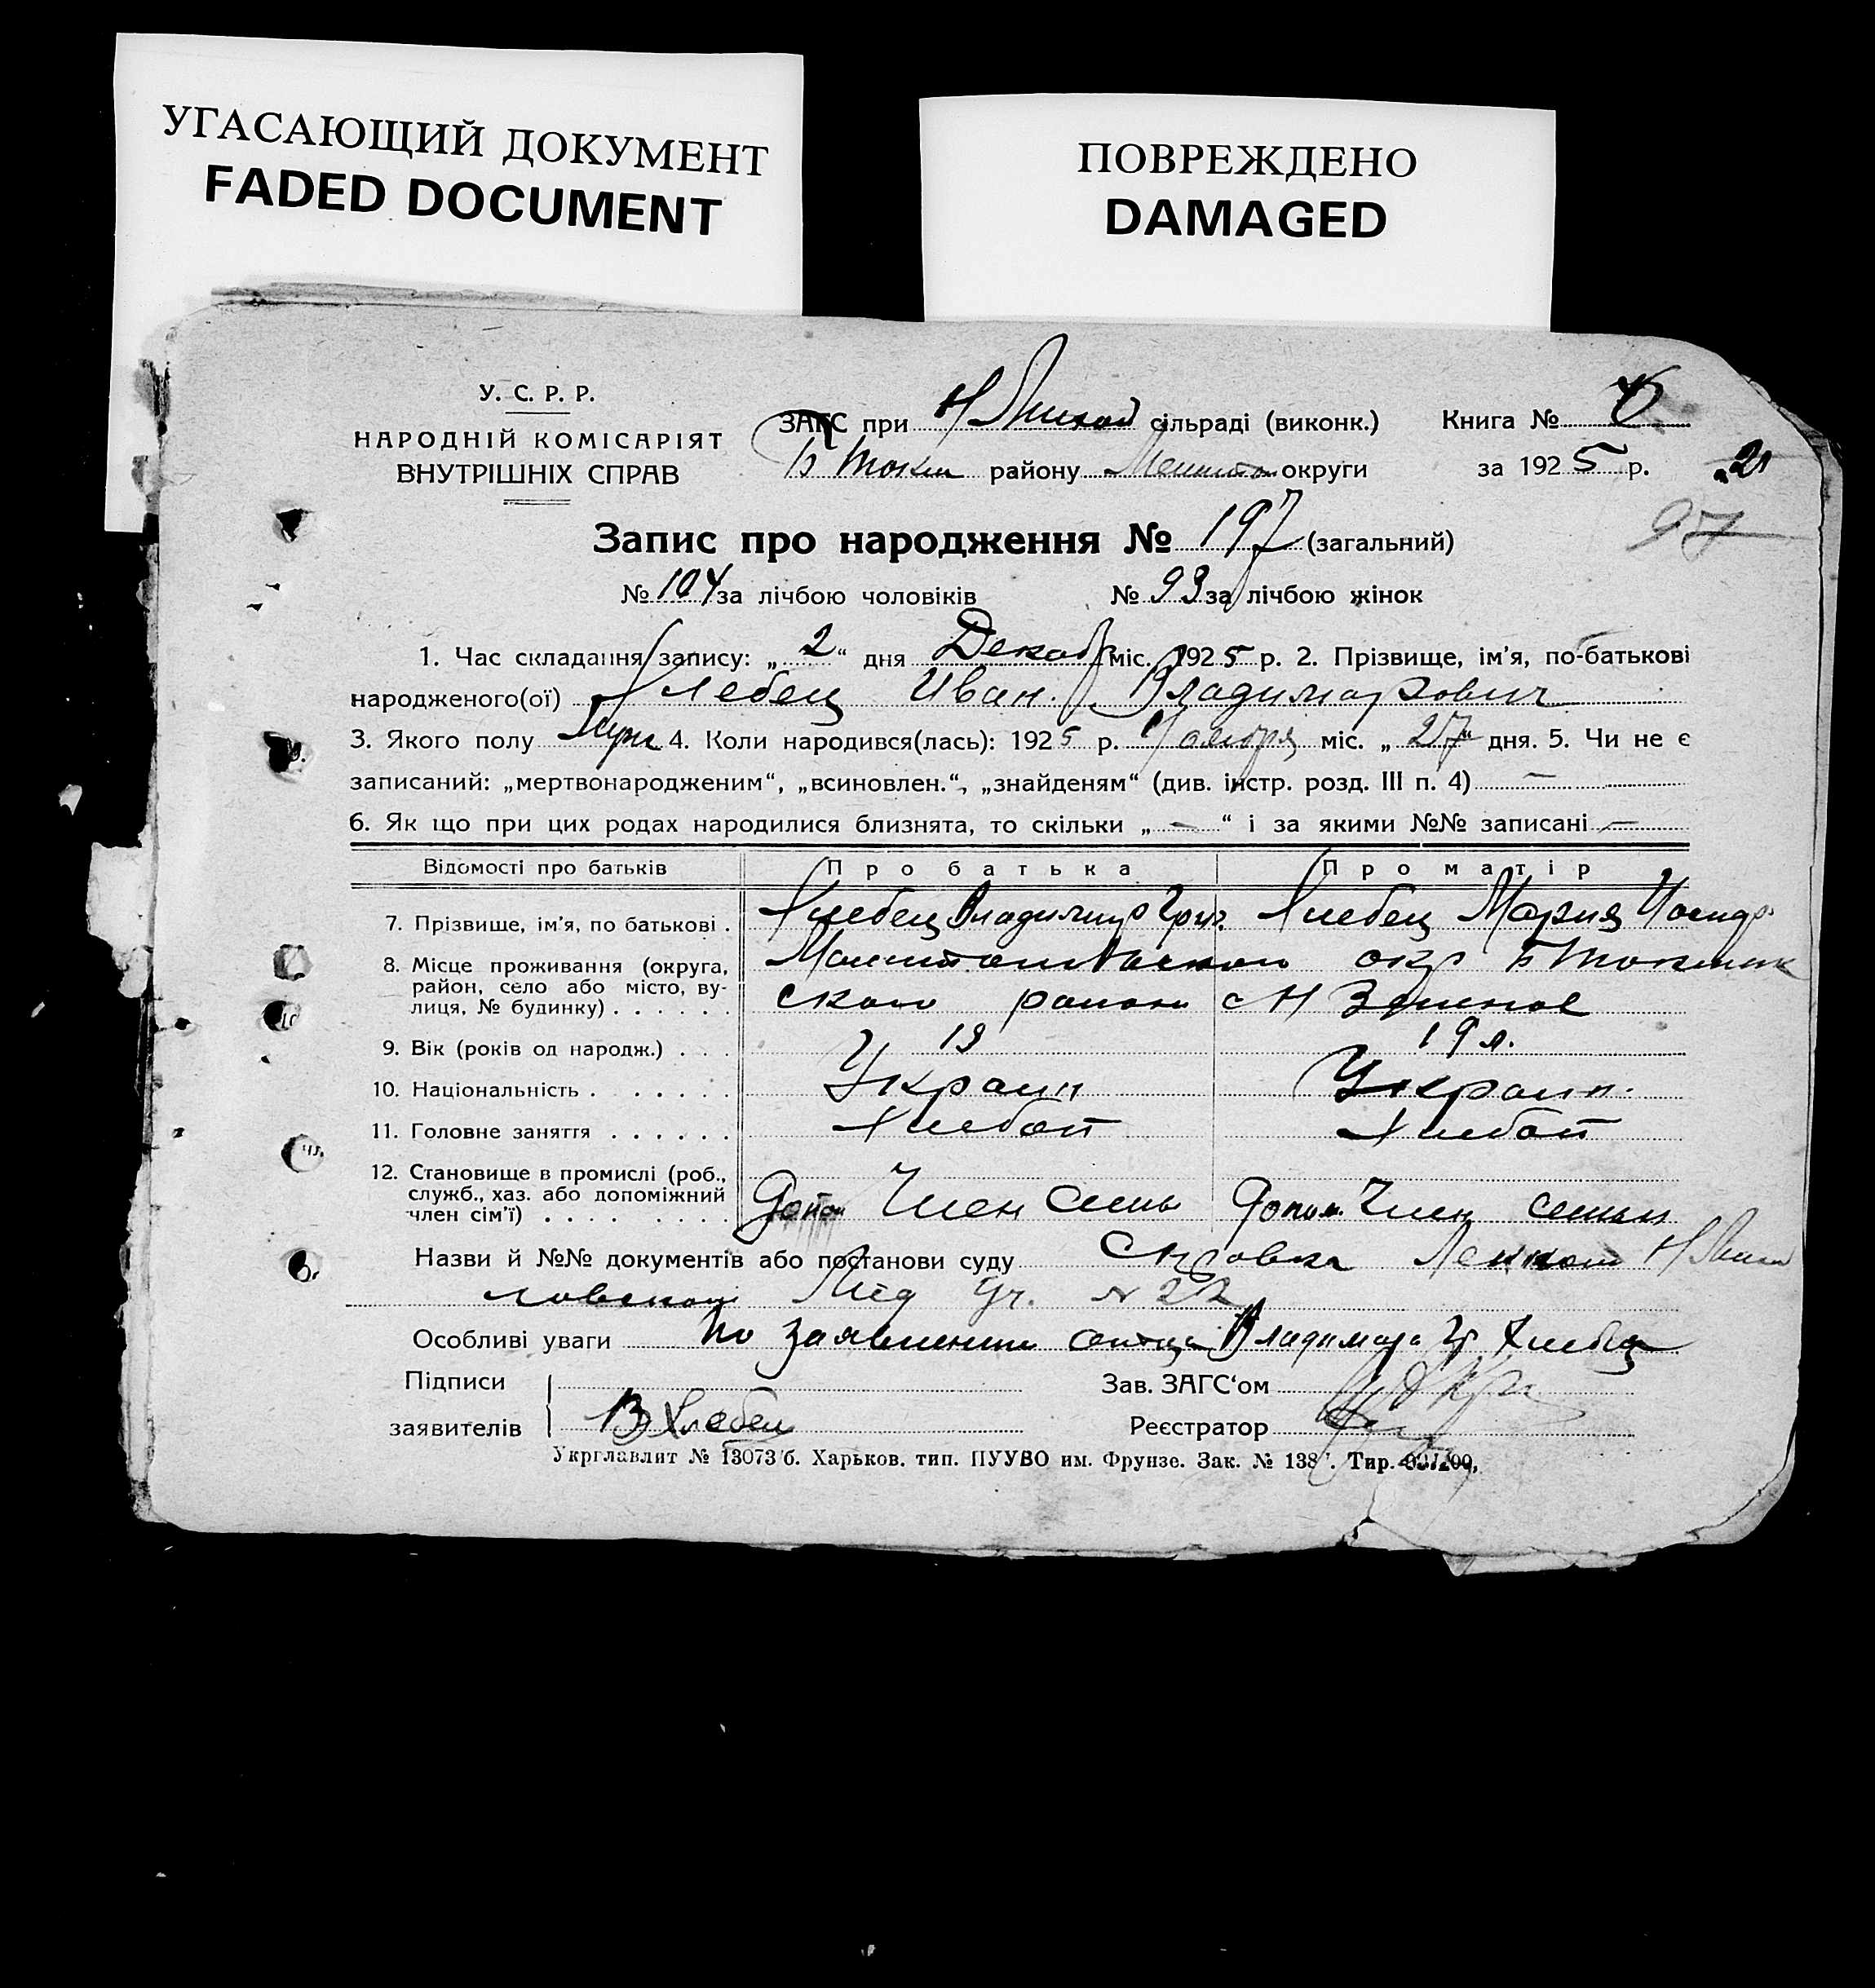 УГАСАЮЩИЙ ДОКУМЕНТ
FADED DOCUMENT
ПОВРЕЖДЕНО
DAMAGED
У. С. Р. Р.
НАРОДНІЙ КОМІСАРІЯТ
ВНУТРІШНІХ СПРАВ
ЗАГС при сільраді (виконк.) Книга №
Б Токм району округи за 1925 р. 21
Запис про народження № 197 (загальний) 97
№ 104 за лічбою чоловіків № 93 за лічбою жінок
1. Час складання запису: „ 2 “ дня Декабр міс. 1925 р. 2. Прізвище, ім'я, по-батькові
народженого(ої) Хлебец Иван Владимирович
3. Якого полу Муж 4. Коли народився(лась): 1925 р. Ноября міс. „ 27 “ дня. 5. Чи не є
записаний: „мертвонародженим“, „всиновлен.“, „знайденям“ (див. інстр. розд. III п. 4) —
6. Як що при цих родах народилися близнята, то скільки „ — “ і за якими №№ записані —
Відомості про батьків Про батька Про матір
7. Прізвище, ім'я, по батькові . Хлебец Владимир Григ. Хлебец Мария
8. Місце проживання (округа, окр Б Токмак
район, село або місто, ву-
лиця, № будинку) . . . . . . ского района с Н
9. Вік (років од народж.) . . . 19 19 л.
10. Національність . . . . . . Украин Украин.
11. Головне заняття . . . . . . Хлебоп Хлебоп
12. Становище в промислі (роб.,
служб., хаз. або допоміжний
член сім'ї) . . . . . . . . Допом Член семьи Допом. Член семьи
Назви й №№ документів або постанови суду Справка
Мед Уч. № 22
Особливі уваги По заявлению отца Владимира Гр. Хлебец
Підписи Зав. ЗАГС‘ом
заявителів В Хлебец Реєстратор
Укрглавлит № 13073/б. Харьков. тип. ПУУВО им. Фрунзе. Зак. № 138 . Тир.